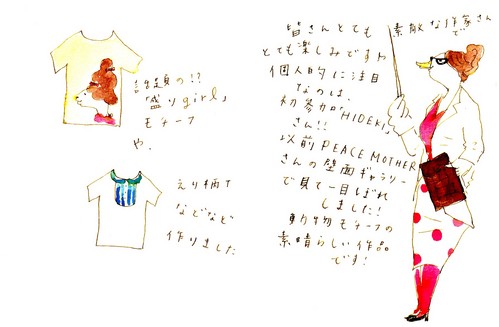 話題の!?
「盛りgirl」
モチーフ
や、
えり柄T
などなど
作りました
皆さんとても 素敵な作家さん
で
とても楽しみですワ
個人的に注目
なのは、
初参加「HIDEKI」
さん!!
以前PEACE MOTHER
さんの壁面ギャラリー
で見て一目ぼれ
しました!
動物モチーフの
素晴らしい作品
です!